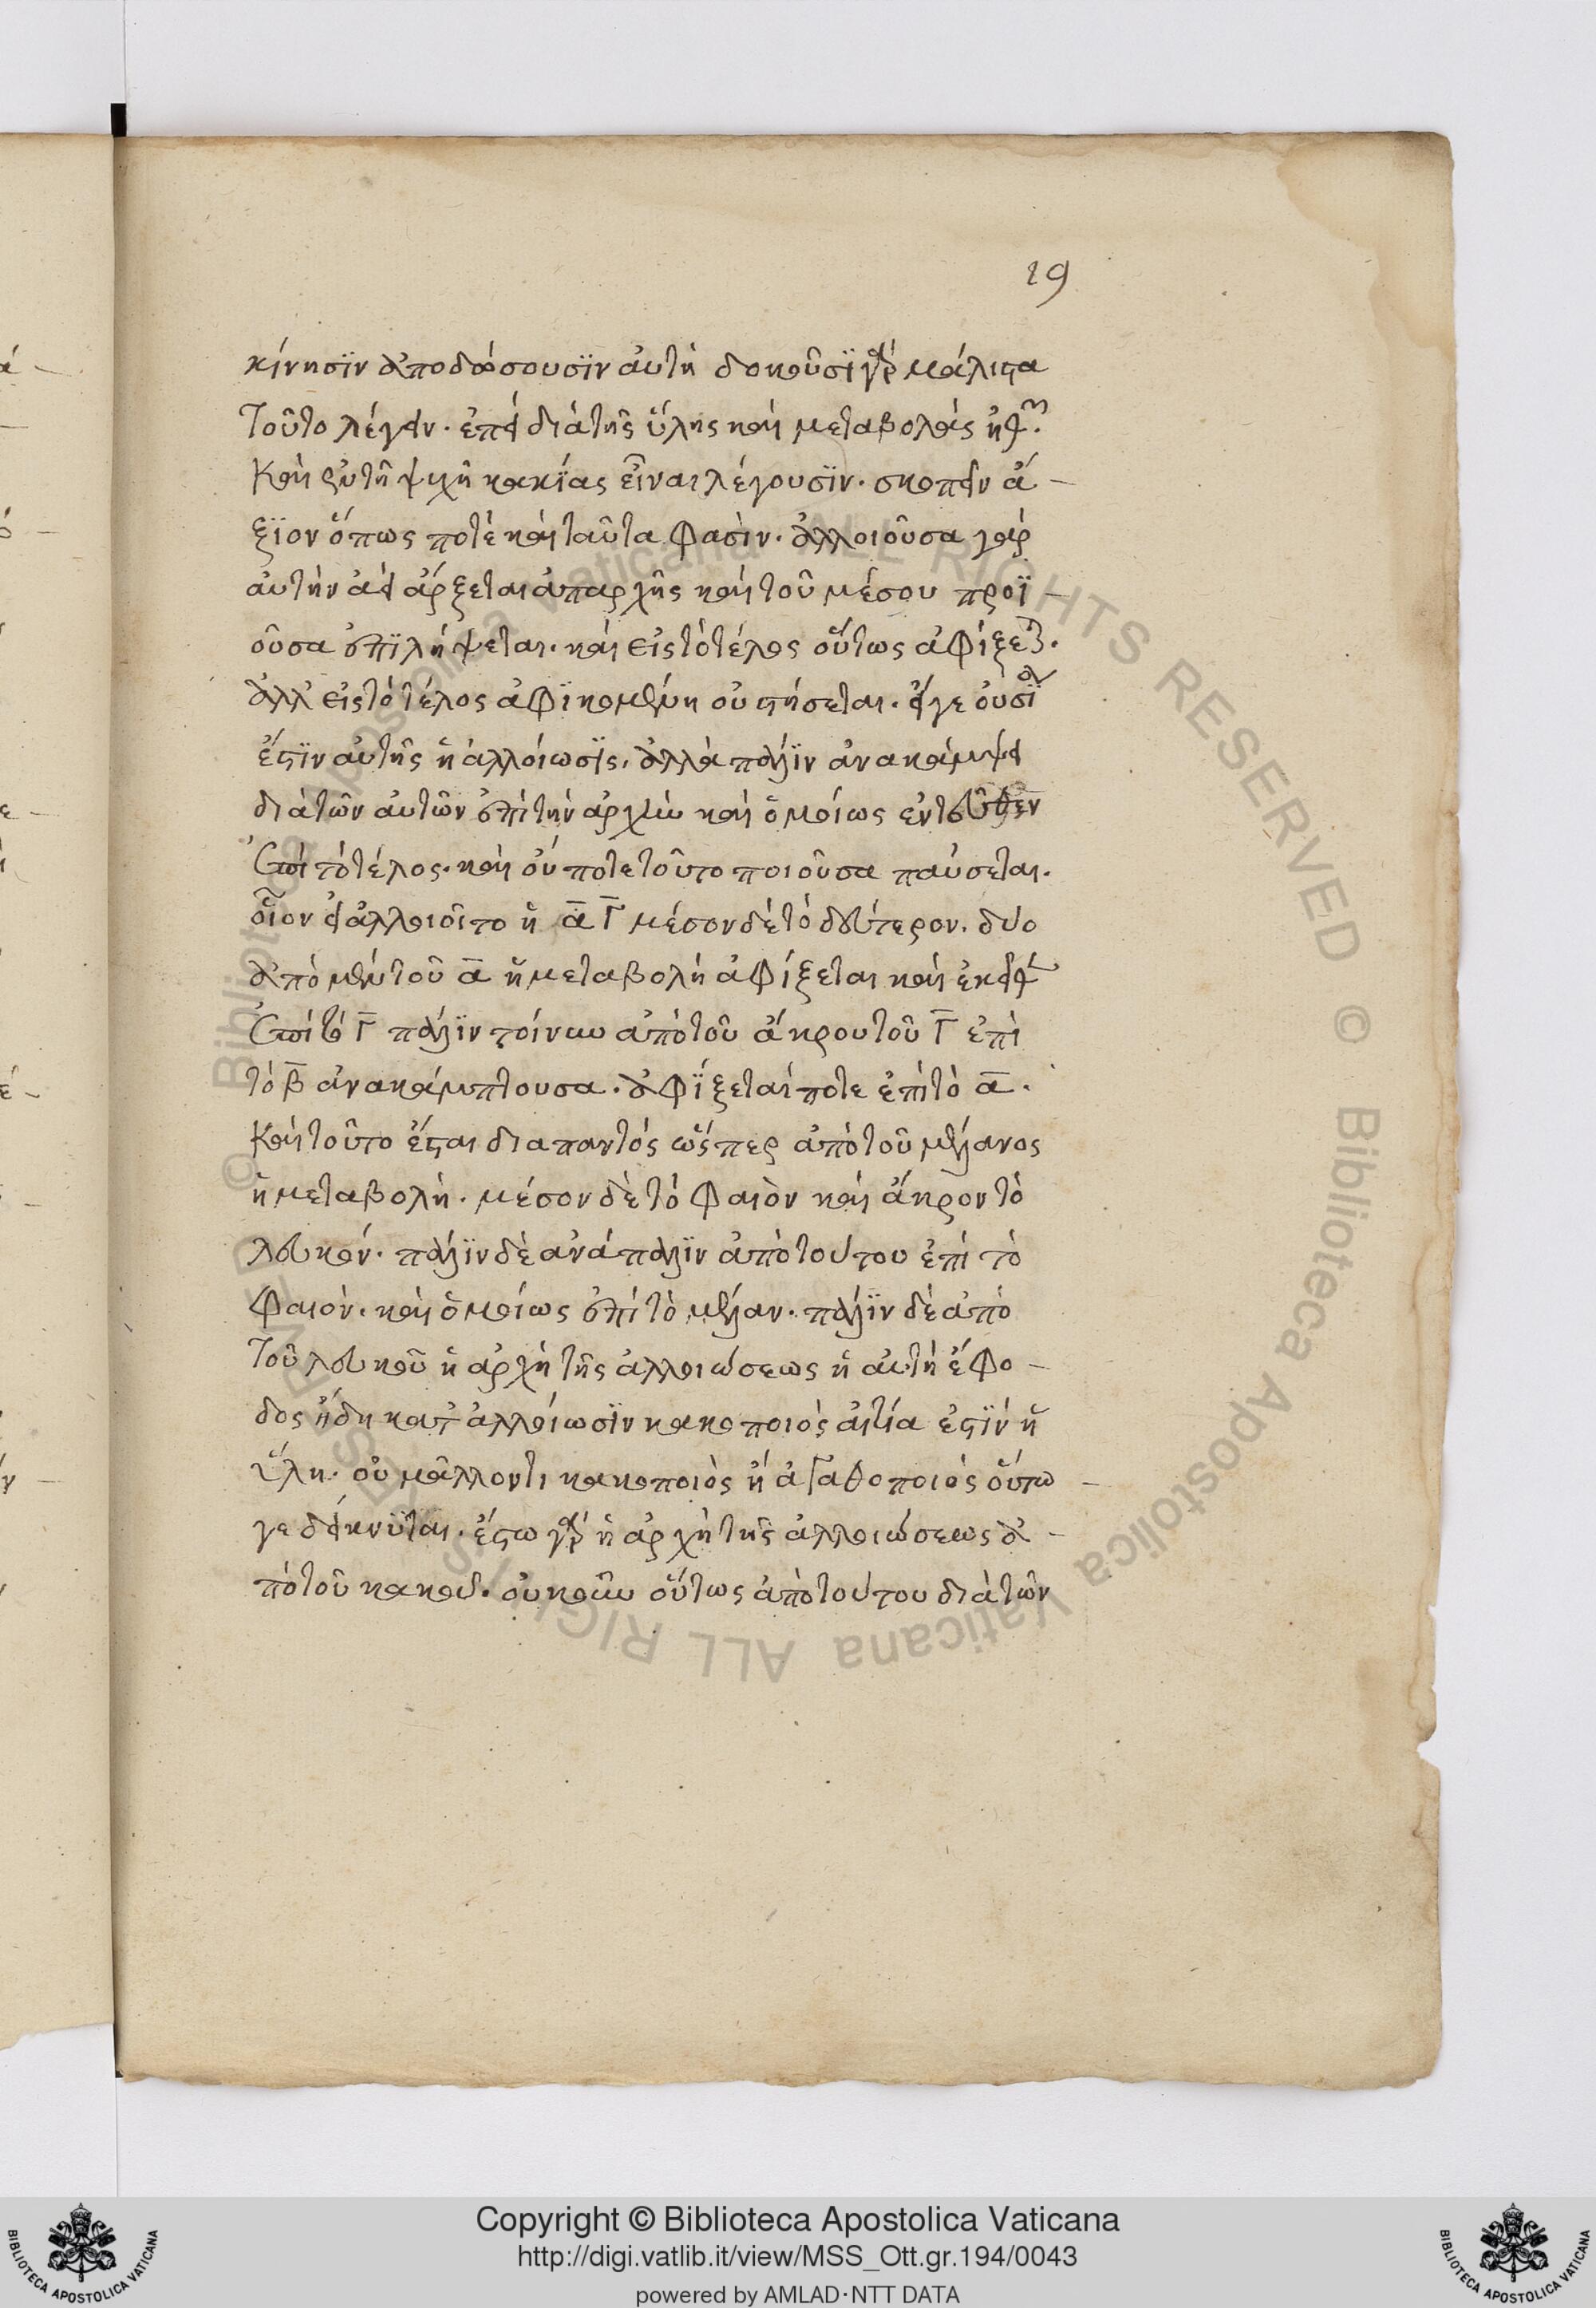 19
κίνησϊν ἀποδώσουσϊν ἀυτὴ δοκοῦσϊ γὰρ μάλιστα
Τοῦτο λέγειν. ἐπεὶ διὰ τῆς ὕλης καὶ μεταβολὰς
Καὶ ἐν τῆ ψυχῆ κακίας εἶναι λέγουσϊν. σκοπεῖν ἄ-
ξϊον ὅπως ποτὲ καὶ ταῦτα φασὶν. ἀλλοιοῦσα γὰρ
ἀυτὴν ἀεὶ ἄρξεται ἀπαρχῆς καὶ τοῦ μέσου προϊ-
οῦσα ἐπϊλήψεται. καὶ εἰς τὸ τέλος οὕτως ἀφίξεται.
ἀλλ' εἰς τὸ τέλος ἀφϊκομένη οὐ στήσεται. εἴγε οὐσϊα
ἐστϊν ἀυτῆς ἡ ἀλλοίωσϊς, ἀλλὰ πάλϊν ἀνακάμψει
διὰ τῶν ἀυτῶν ἐπὶ τὴν ἀρχὴν καὶ ὁμοίως ἐντεῦθεν
ἐπὶ τὸ τέλος. καὶ οὔποτε τοῦτο ποιοῦσα παύσεται.
οἷον εἰ ἀλλοιοῖτο ἡ ᾱ Γ̄ μέσον δὲ τὸ δεύτερον. δύο
ἀπὸ μὲν τοῦ ᾱ ἡ μεταβολὴ ἀφίξεται καὶ
ἐπὶ τὸ Γ̄ πάλϊν τοίνυν ἀπὸ τοῦ ἄκρου τοῦ Γ̄ ἐπὶ
τὸ β̄ ἀνακάμπτουσα. ἀφΐξεταί ποτε ἐπὶ τὸ ᾱ.
Καὶ τοῦτο ἔσται διαπαντός ὥσπερ ἀπὸ τοῦ μέλανος
ἡ μεταβολή. μέσον δὲ τὸ φαιὸν καὶ ἄκρον τὸ
λευκόν. πάλϊν δὲ ἀνάπαλϊν ἀπὸ τούτου ἐπὶ τὸ
φαιόν. καὶ ὁμοίως ἐπὶ τὸ μέλαν. πάλϊν δὲ ἀπὸ
τοῦ λευκοῦ ἡ ἀρχὴ τῆς ἀλλοιώσεως ἡ ἀυτὴ ἔφο-
δος ἤδη κατ' ἀλλοίωσϊν κακοποιὸς ἀιτία ἐστϊν ἡ
ὕλη. οὐ μᾶλλον τι κακοποιὸς ἢ ἀγαθοποιὸς οὕτω-
γε δείκνϋται. ἔστω γὰρ ἡ ἀρχὴ τῆς ἀλλοιώσεως ἀ-
πὸ τοῦ κακοῦ. οὐκοῦν οὕτως ἀπὸ τούτου διὰ τῶν
© Biblioteca Apostolica Vaticana ALL RIGHTS RESERVED © Biblioteca Apostolica Vaticana ALL RIGHTS RESERVED
Copyright © Biblioteca Apostolica Vaticana
http://digi.vatlib.it/view/MSS_Ott.gr.194/0043
powered by AMLAD·NTT DATA
BIBLIOTECA APOSTOLICA VATICANA
BIBLIOTECA APOSTOLICA VATICANA